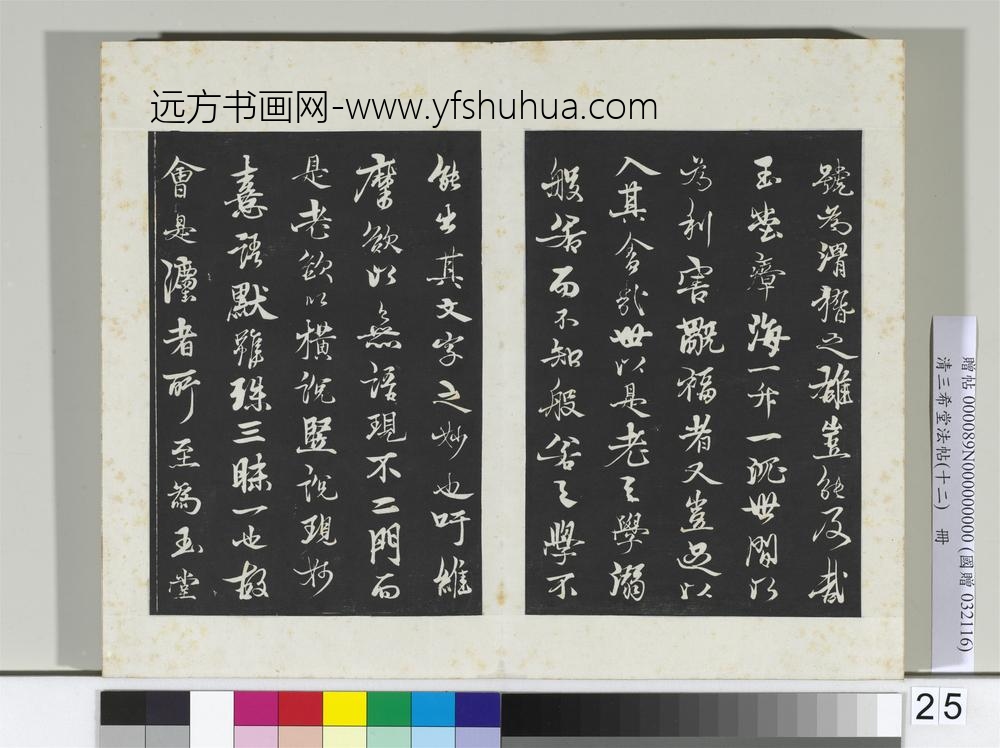 远方书画网-www.yfshuhua.com
號為渭獝之雄豈能及哉
玉堂瘴海一升一沉世間以
為利害覼福者又豈足以
入其舍哉世以是老之學溺
般若而不知般若之學不
能出其文字之妙也吁維
摩欲以無語現不二門而
是老欲以橫說豎說現妙
憙語默雖殊三昧一也故
會是灋者所至為玉堂
贈帖 0000089N000000000 (國贈 032116)
清三希堂法帖(十二) 冊
25